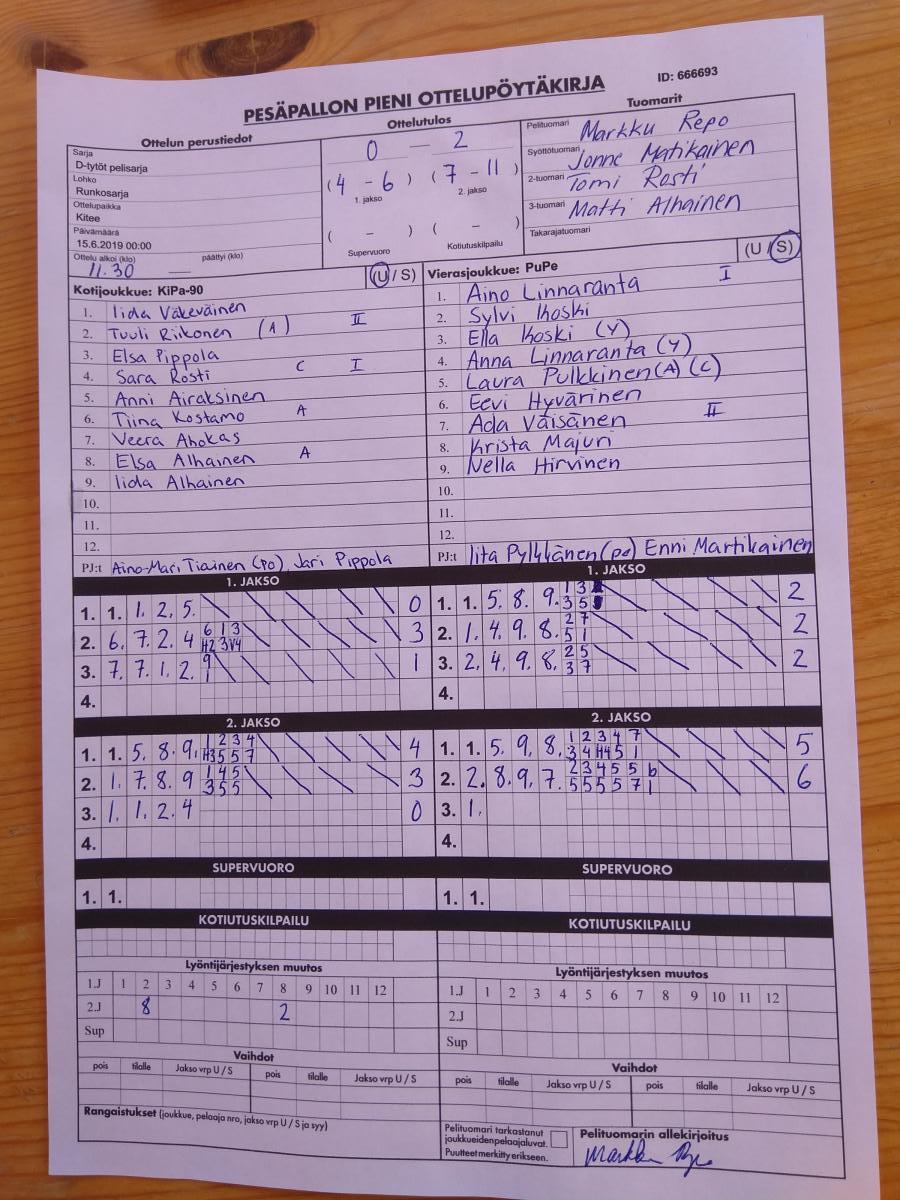 PESÄPALLON PIENI OTTELUPÖYTÄKIRJA ID: 666693
Ottelun perustiedot
Sarja
D-tytöt pelisarja
Lohko
Runkosarja
Ottelupaikka
Kitee
Päivämäärä
15.6.2019 00:00
Ottelu alkoi (klo) päättyi (klo)
11.30 —
Ottelutulos
0 — 2
(4 - 6) (7 - 11)
1. jakso 2. jakso
( - ) ( - )
Supervuoro Kotiutuskilpailu
Tuomarit
Pelituomari Markku Repo
Syöttötuomari Jonne Matikainen
2-tuomari Tomi Rosti
3-tuomari Matti Alhainen
Takarajatuomari
Kotijoukkue: KiPa-90 (U / S)
1. Iida Väkeväinen
2. Tuuli Riikonen (A) II
3. Elsa Pippola
4. Sara Rosti C I
5. Anni Airaksinen
6. Tiina Kostamo A
7. Veera Ahokas
8. Elsa Alhainen A
9. Iida Alhainen
10.
11.
12.
PJ:t Aino-Mari Tiainen (po) Jari Pippola
Vierasjoukkue: PuPe (U / S)
1. Aino Linnaranta I
2. Sylvi Koski
3. Ella Koski (Y)
4. Anna Linnaranta (Y)
5. Laura Pulkkinen (A) (C)
6. Eevi Hyvärinen
7. Ada Väisänen II
8. Krista Majuri
9. Nella Hirvinen
10.
11.
12.
PJ:t Iita Pylkkänen (po) Enni Martikainen
1. JAKSO
1. 1. 1. 2. 5. 0
2. 6. 7. 2. 4 6 1 3 3
H2 3 V4
3. 7. 7. 1. 2. 9 1
1
4.
1. JAKSO
1. 1. 5. 8. 9. 1 3 2
3 5
2. 1. 4. 9. 8. 2 7 2
5 1
3. 2. 4. 9. 8. 2 5 2
3 7
4.
2. JAKSO
1. 1. 5. 8. 9. 1 2 3 4 4
H3 5 5 7
2. 1. 7. 8. 9 1 4 5 3
3 5 5
3. 1. 1. 2. 4 0
4.
2. JAKSO
1. 1. 5. 9. 8. 1 2 3 4 7 5
3 4 H4 5 1
2. 2. 8. 9. 7. 2 3 4 5 5 6 6
5 5 5 5 7 1
3. 1.
4.
SUPERVUORO
1. 1.
SUPERVUORO
1. 1.
KOTIUTUSKILPAILU
KOTIUTUSKILPAILU
Lyöntijärjestyksen muutos
1.J 1 2 3 4 5 6 7 8 9 10 11 12
2.J 8 2
Sup
Lyöntijärjestyksen muutos
1.J 1 2 3 4 5 6 7 8 9 10 11 12
2.J
Sup
Vaihdot
pois tilalle Jakso vrp U / S pois tilalle Jakso vrp U / S
Vaihdot
pois tilalle Jakso vrp U / S pois tilalle Jakso vrp U / S
Rangaistukset (joukkue, pelaaja nro, jakso vrp U / S ja syy)
Pelituomari tarkastanut
joukkueidenpelaajaluvat.
Puutteet merkitty erikseen.
Pelituomarin allekirjoitus
Markku Repo